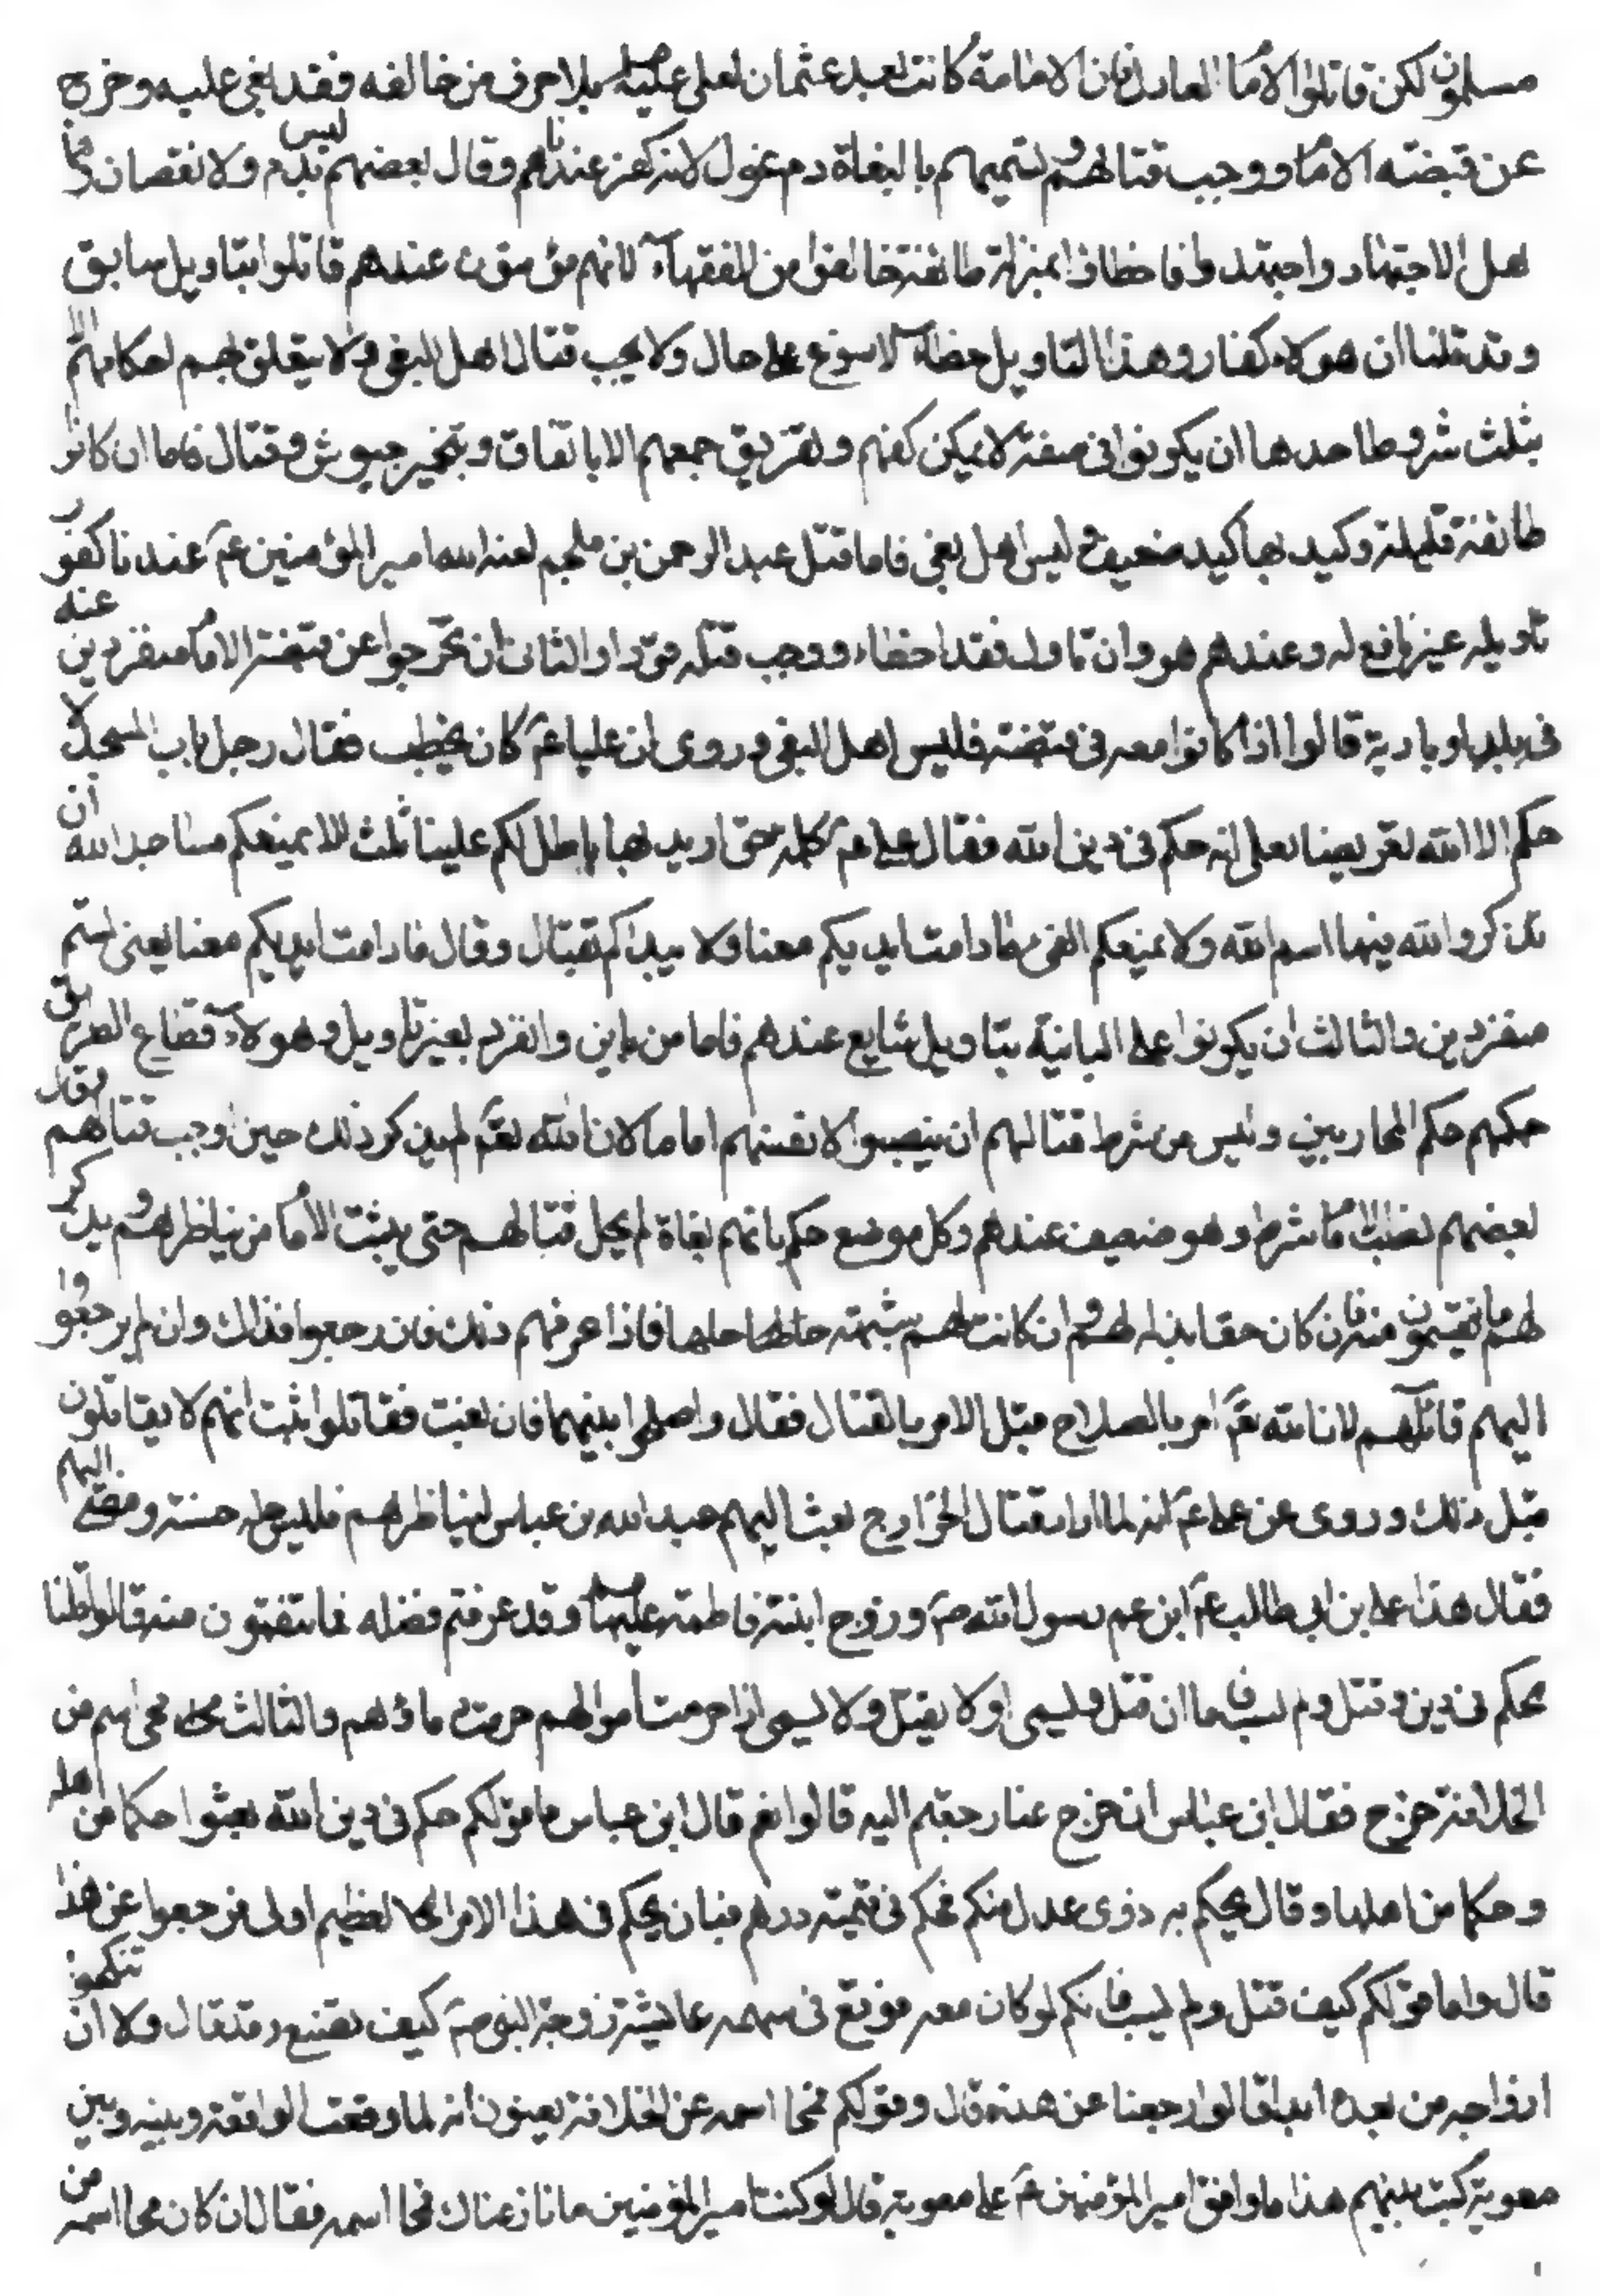 مسلمون لكن قاتلوا الامام العادل فان الامامة كانت بعد عثمان لعلي عليه السلم بلا حرف من خالفه فقد بغى عليه وخرج
عن قبضته الامام ووجب قتالهم وتسميهم بالبغاة دم عندنا لانه كفر عندنا وقال بعضهم ليس بذم ولا نقصان
اهل الاجتهاد واجتهدوا فاخطاوا بمنزلة طائفة خالفوا من الفقهاء لانهم مؤمنون عندهم قاتلوا بتاويل سابق
وقد قلنا ان هولاء كفار وهذا التاويل خطاء لا يسوغ على حال ولا يجب قتال اهل البغي ولا يتعلق بهم احكامهم الا
بثلث شروط احدها ان يكونوا في منعة لا يمكن كفهم وتفريق جمعهم الا باتفاق وتجهيز جيوش وقتال فاما ان كانوا
طائفة قليلة وكيدها كيد ضعيف ليس اهل بغي فاما قتل عبد الرحمن بن ملجم لعنه الله امير المؤمنين عم عندنا كفر و
تاويله غير نافع له وعندهم هو وان تاول فقد اخطاء ووجب قتله قودا والثاني ان يخرجوا عن قبضة الامام منفردين عنه
في بلد او بادية قالوا اذا كانوا معه في قبضته فليس اهل البغي وروى ان عليا عم كان يخطب فقال رجل بباب المسجد لا
حكم الا الله تعريضا بعلي انه حكم في دين الله فقال علي عم كلمة حق اريد بها باطل لكم علينا ثلث الا نمنعكم مساجد الله ان
تذكروا الله فيها اسم الله ولا نمنعكم الفئ ما دامت ايديكم معنا ولا نبداكم بقتال وقال ما دامت ايديكم معنا يعني لستم
منفردين والثالث ان يكونوا على المباينة بتاويل شايع عندهم فاما من باين وانفرد بغير تاويل وهولاء قطاع الطريق
حكمهم حكم المحاربين وليس من شرط قتالهم ان ينصبوا لانفسهم اماما لان الله تعم لم يذكر ذلك حين اوجب قتالهم وقال
بعضهم نصب الامام شرط وهو ضعيف عندهم وكل موضع حكم بانهم بغاة لم يحل قتالهم حتى يبعث الامام من يناظرهم ويذكر
لهم ما ينقمون منه فان كان حقا بذله لهم وان كانت لهم شبهة حلها فاذا عرفهم ذلك فان رجعوا فذلك وان لم يرجعوا
اليهم قاتلهم لان الله تعم امر بالصلاح قبل الامر بالقتال فقال واصلحوا بينهما فان بغت فقاتلوا ثبت انهم لا يقاتلون
قبل ذلك وروى عن علي عم انه لما اراد قتال الخوارج بعث اليهم عبد الله بن عباس ليناظرهم فلبس حلة حسنة ومضى اليهم
فقال هذا علي بن ابي طالب عم ابن عم رسول الله صم وزوج ابنته فاطمة عليها السلم وقد عرفتم فضله فما تنقمون منه قالوا ثلثا
حكم في دين وقتل ولم يسب فاما ان قتل وليسبي او لا يقتل ولا يسبي اذا حرمت اموالهم حرمت دماؤهم والثالث محى اسم من
الخلافة خرج فقال ابن عباس ان خرج عنها رجعتم اليه قالوا نعم قال ابن عباس ما قولكم حكم في دين الله بعثوا حكما من اهله
وحكما من اهلها وقال يحكم به ذوى عدل منكم فحكم في قيمته درهم فبان يحكم في هذا الامر العظيم اولى فرجعوا عن هذا
قال واما قولكم كيف قتل ولم يسب فايكم لو كان معه فوقع في سهمه عايشة زوجة النبي صم كيف يصنع وقد قال ولا ان تنكحوا
ازواجه من بعده ابدا قالوا رجعنا عن هذه قال وقولكم محا اسمه عن الخلافة يعنون انه لما وقعت الواقعة وبينه وبين
معوية كتب بينهم هذا ما وافق امير المؤمنين عم علي معوية قال لو كنت امير المؤمنين ما نازعناك فمحا اسمه فقال ان كان محا اسمه من